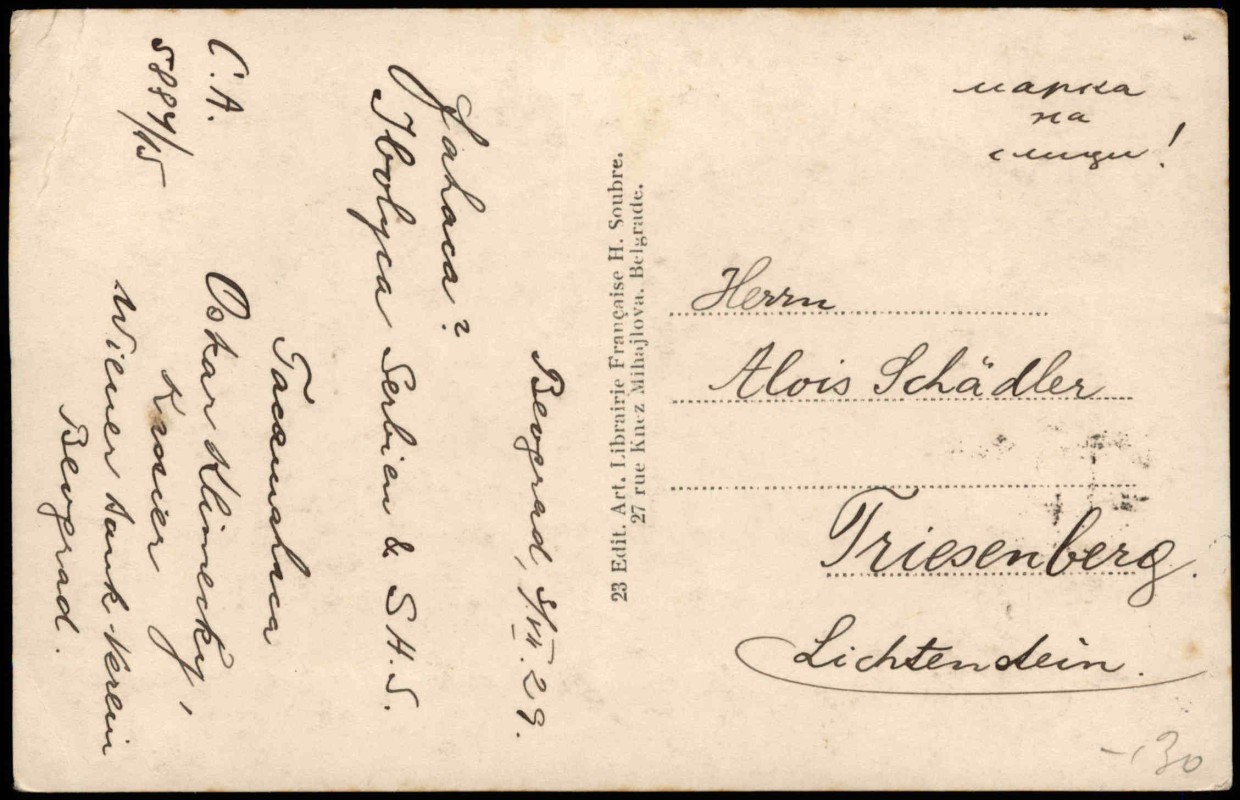 марка
на
слици!
Herrn
Alois Schädler
Triesenberg.
Lichtenstein.
23 Edit. Art. Librairie Française H. Soubre.
27 rue Knez Mihajlova. Belgrade.
Beograd, 5/VII. 29.
Serbien & S H. S.
C. A.
5884/15
Oskar Klimecky,
Kassier
Wiener Bank-Verein
Beograd.
-,30